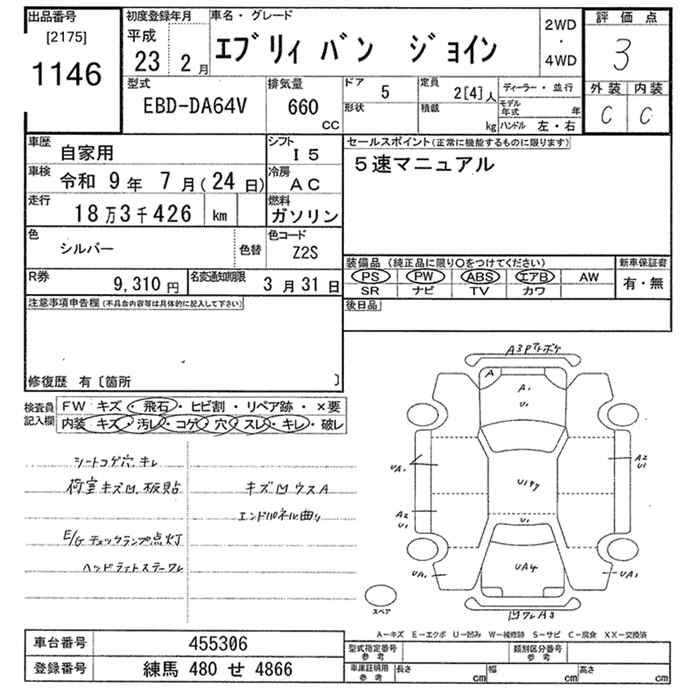 出品番号
[2175]
1146
初度登録年月
平成
23 2月
車名・グレード
エブリィ バン ジョイン
2WD
・
4WD
評価点
3
外装 内装
C C
型式
EBD-DA64V
排気量
660
CC
ドア
5
定員
2[4]人
形状
積載
kg
ディーラー・並行
モデル年式 年
ハンドル 左・右
車歴
自家用
シフト
I5
車検
令和 9年 7月(24日)
冷房
AC
走行
18万3千426 km
燃料
ガソリン
色
シルバー
色替
色コード
Z2S
R券
9,310円
名変通知期限
3月31日
セールスポイント(正常に機能するものに限ります)
5速マニュアル
装備品(純正品に限り○をつけてください)
新車保証書
PS PW ABS エアB AW
SR ナビ TV カワ
有・無
後日品
注意事項申告欄(不具合内容等は具体的に記入して下さい)
修復歴 有〔箇所 〕
検査員記入欄
FW キズ・飛石・ヒビ割・リペア跡・×要
内装 キズ・汚レ・コゲ・穴・スレ・キレ・破レ
シートコゲ穴キレ
荷室キズ凹、板貼
E/Gチェックランプ点灯
ヘッドライトステーワレ
キズ凹ウスA
エンドパネル曲り
A
A1
U1
UA1
A2
U1
A2
U1
U1
UA4
UA1
UA1
スペア
A-キズ E-エクボ U-凹み W-補修跡 S-サビ C-腐食 XX-交換済
車台番号 455306
登録番号 練馬 480 せ 4866
型式指定番号
参考
類別区分番号
参考
車庫証明用
参考
長さ cm 幅 cm 高さ cm